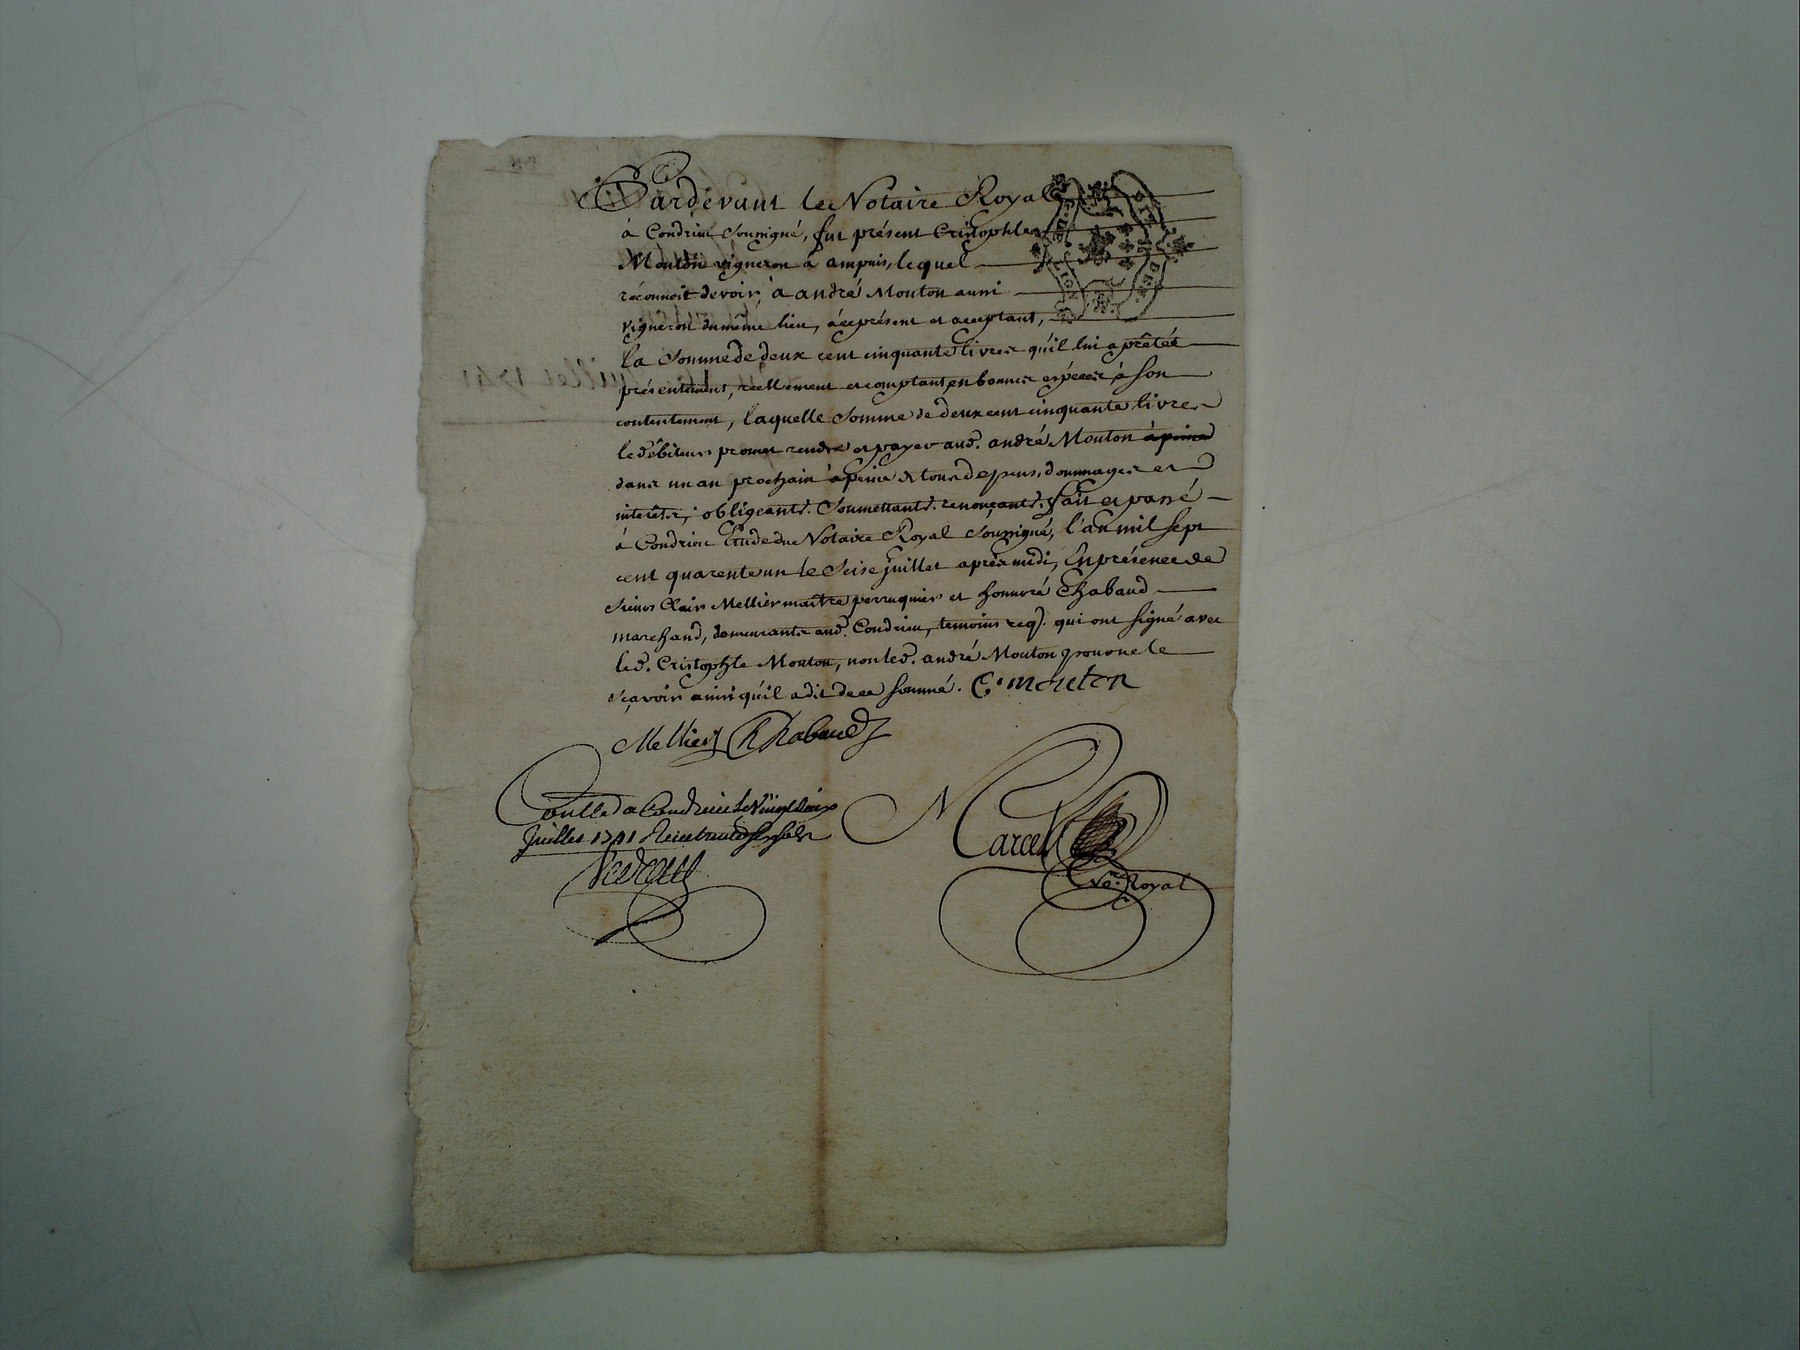 Pardevant le Notaire Royal
à Condrieu soussigné, fut présent Cristophle
Mouton vigneron à ampuis, lequel
réconnoit devoir, à andré Mouton aussi
vigneron du même lieu, àceprésent et acceptant,
la somme de deux cent cinquante livres qu'il lui a prêtée
présentement, réellement et comptant en bonnes espèces à son
contentement, laquelle somme de deux cent cinquante livres
le débiteur promet rendre et payer aud. andré Mouton à peine
dans un an prochain à peine de tous depens, dommages et
intérêts; obligeants. soumettants. renonçants. fait et passé
à Condrieu Etude du Notaire Royal soussigné, l'an mil sept
cent quarente un le seise juillet après midi, En présence de
sieurs Clair Mellier maître perruquier et honnoré Chabaud
marchand, demeurants aud. Condrieu, temoins req. qui ont signé avec
led. Cristophle Mouton, non led. andré Mouton pour ne le
sçavoir ainsi qu'il a dit de ce sommé. C. mouton
Mellier Chabaud
Conllé a Condrieu le Vingt deux
Juillet 1741 Reçu
Marcel
No.re Royal
juillet 1741